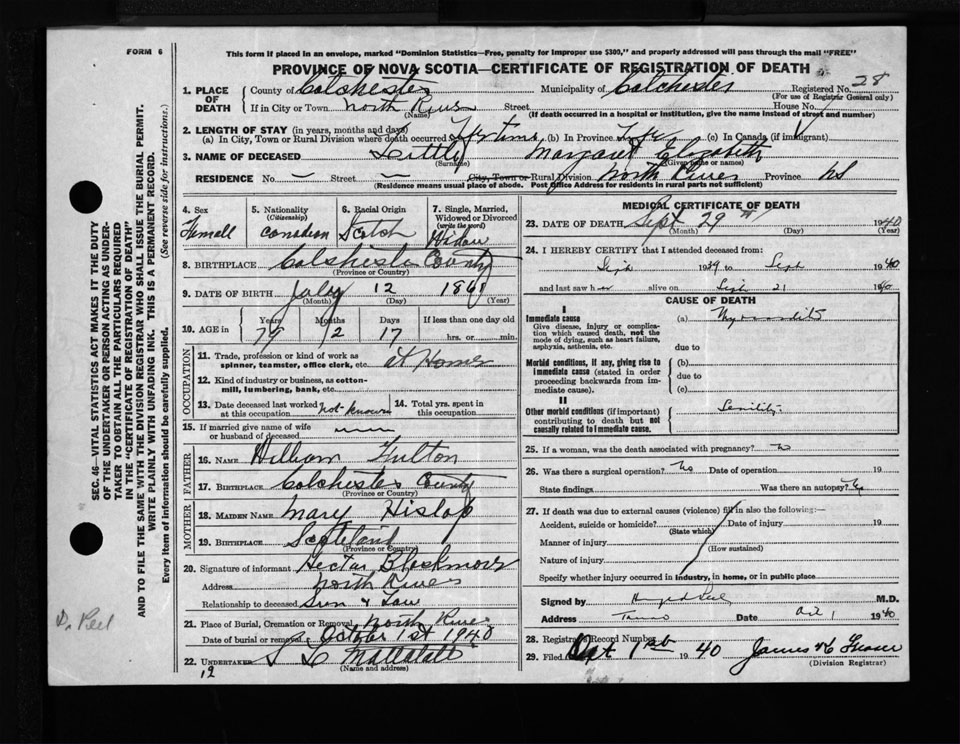 FORM 6
This form if placed in an envelope, marked "Dominion Statistics—Free, penalty for improper use $300," and properly addressed will pass through the mail "FREE"
PROVINCE OF NOVA SCOTIA—CERTIFICATE OF REGISTRATION OF DEATH
1. PLACE OF DEATH
County of Colchester Municipality of Colchester Registered No. 28
(For use of Registrar General only)
If in City or Town North River Street House No.
(Name) (If death occurred in a hospital or institution, give the name instead of street and number)
2. LENGTH OF STAY (in years, months and days)
(a) In City, Town or Rural Division where death occurred Lifetime (b) In Province Life (c) In Canada (if immigrant)
3. NAME OF DECEASED Little Margaret Elizabeth
(Surname) (Given name or names)
RESIDENCE No. — Street — City, Town or Rural Division North River Province NS
(Residence means usual place of abode. Post Office Address for residents in rural parts not sufficient)
4. Sex
Femall
5. Nationality (Citizenship)
Canadian
6. Racial Origin
Scotch
7. Single, Married, Widowed or Divorced (write the word)
Widow
8. BIRTHPLACE Colchester County
(Province or Country)
9. DATE OF BIRTH July 12
(Month) (Day) (Year)
10. AGE in Years Months Days If less than one day old
79 2 17 hrs. or min.
OCCUPATION
11. Trade, profession or kind of work as spinner, teamster, office clerk, etc. at Home
12. Kind of industry or business, as cotton-mill, lumbering, bank, etc.
13. Date deceased last worked at this occupation not known
14. Total yrs. spent in this occupation
15. If married give name of wife or husband of deceased
FATHER
16. NAME William Fulton
17. BIRTHPLACE Colchester County
(Province or Country)
MOTHER
18. MAIDEN NAME Mary Hislop
19. BIRTHPLACE Scotland
(Province or Country)
20. Signature of informant Hector Blackmore
Address North River
Relationship to deceased Sun & Law
21. Place of Burial, Cremation or Removal North River
Date of burial or removal October 1st 1940
22. UNDERTAKER
(Name and address)
12
MEDICAL CERTIFICATE OF DEATH
23. DATE OF DEATH Sept 29 1940
(Month) (Day) (Year)
24. I HEREBY CERTIFY that I attended deceased from:
Sept 1939 to Sept 1940
and last saw her alive on Sept 21 1940
CAUSE OF DEATH
I
Immediate cause (a) Myocarditis
Give disease, injury or complication which caused death, not the mode of dying, such as heart failure, asphyxia, asthenia, etc.
due to
Morbid conditions, if any, giving rise to immediate cause (stated in order proceeding backwards from immediate cause).
(b)
due to
(c)
II
Other morbid conditions (if important) contributing to death but not causally related to immediate cause.
Senility
25. If a woman, was the death associated with pregnancy? No
26. Was there a surgical operation? No Date of operation 19
State findings Was there an autopsy? No
27. If death was due to external causes (violence) fill in also the following:—
Accident, suicide or homicide? Date of injury 19
(State which)
Manner of injury
(How sustained)
Nature of injury
Specify whether injury occurred in industry, in home, or in public place
Signed by M.D.
Address Truro Date Oct 1 1940
28. Registrar's Record Number
29. Filed Oct 1st 1940 James K Fraser
(Division Registrar)
SEC. 46—VITAL STATISTICS ACT MAKES IT THE DUTY
OF THE UNDERTAKER OR PERSON ACTING AS UNDER-
TAKER TO OBTAIN ALL THE PARTICULARS REQUIRED
IN THE "CERTIFICATE OF REGISTRATION OF DEATH"
AND TO FILE THE SAME WITH THE DIVISION REGISTRAR WHO SHALL ISSUE THE BURIAL PERMIT.
WRITE PLAINLY WITH UNFADING INK. THIS IS A PERMANENT RECORD.
Every item of information should be carefully supplied. (See reverse side for instructions.)
D. Peel